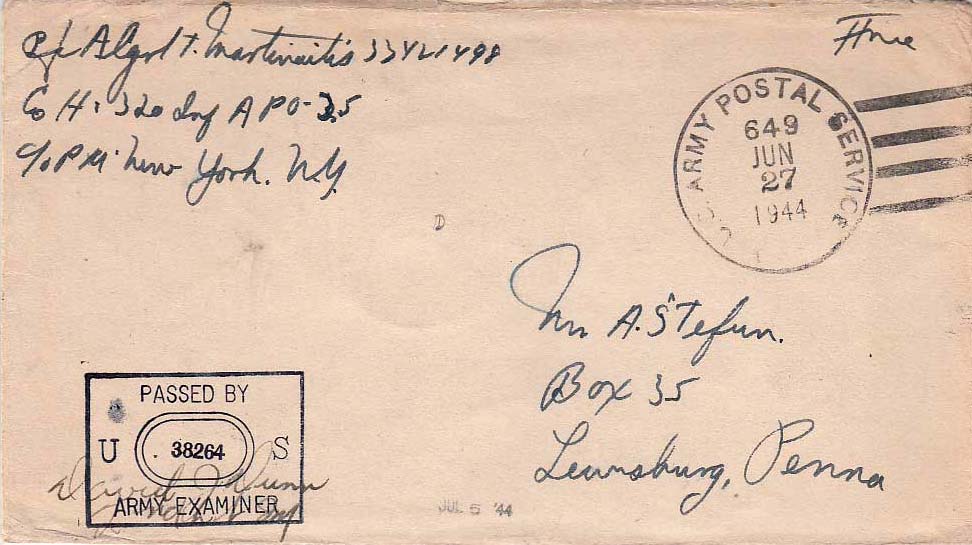 Pfc Algert T. Martinaitis 33421498
Co H. 320 Inf APO-35
c/o PM. New York. N.Y.
Free
U.S. ARMY POSTAL SERVICE
649
JUN
27
1944
D
A. Stefun.
Box 35
Lewisburg, Penna
PASSED BY
U 38264 S
ARMY EXAMINER
David Dunn
JUL 5 '44